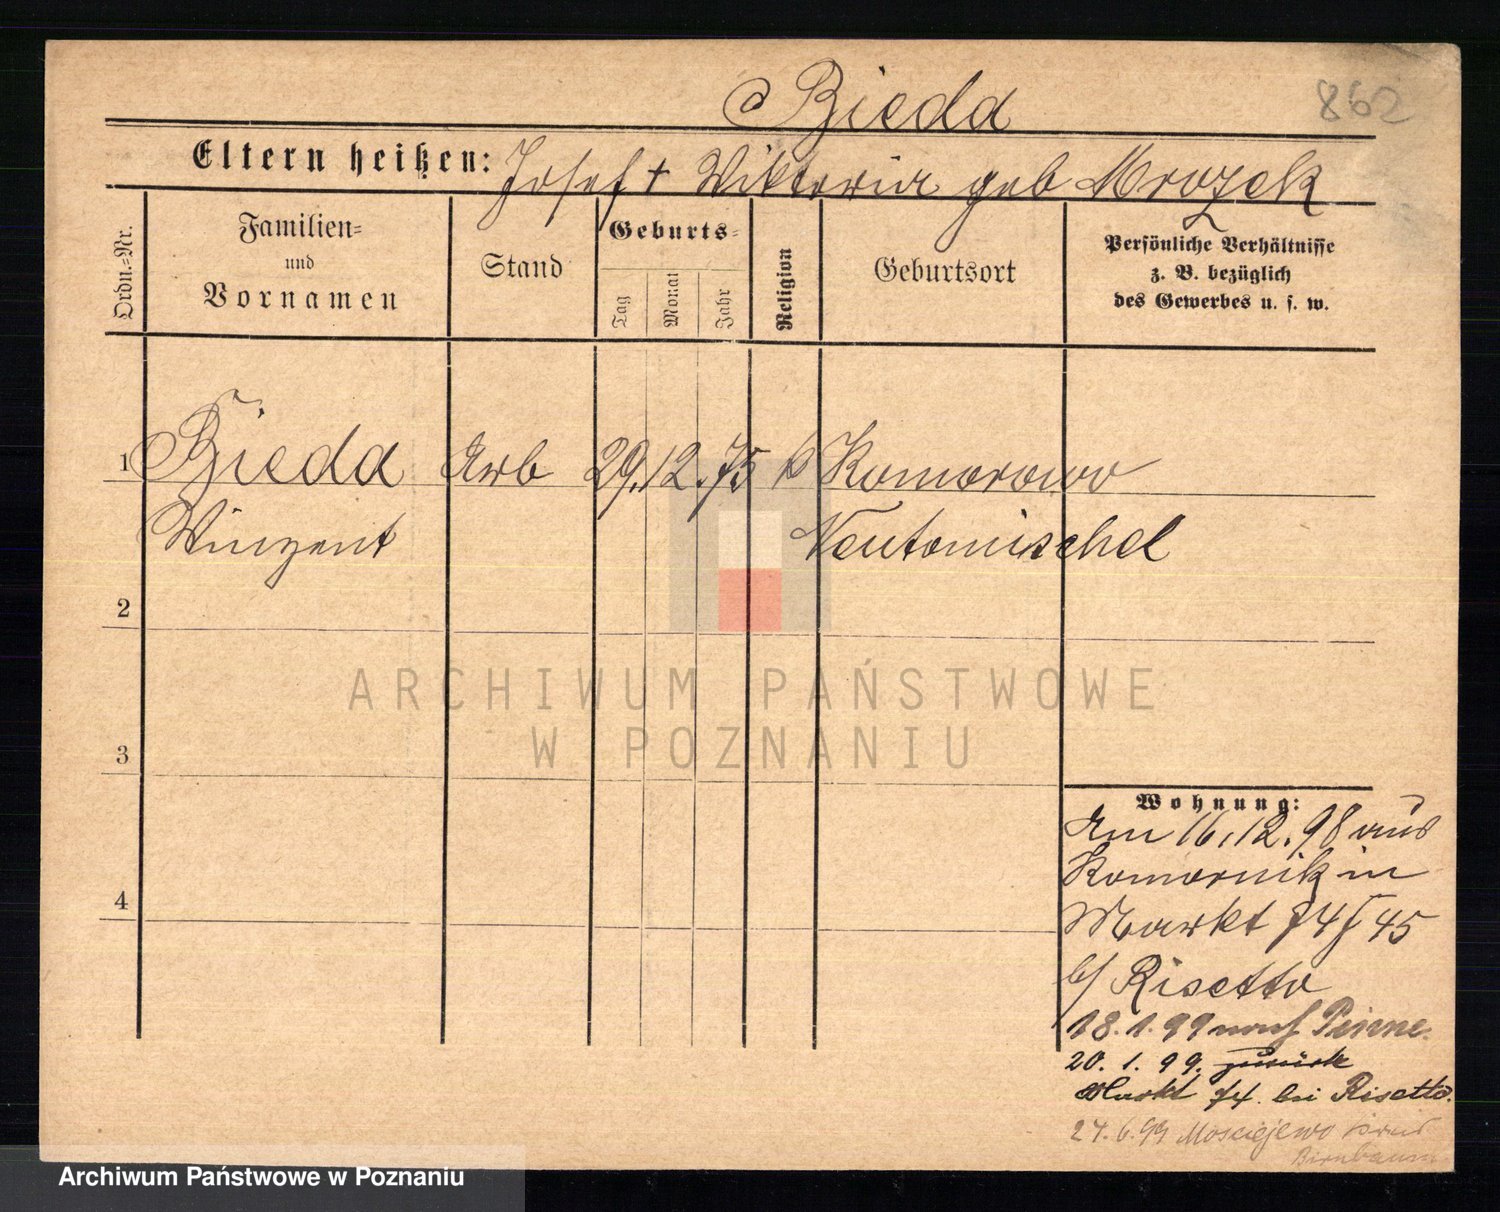 Bieda
862
Eltern heißen: Josef + Wiktoria geb Mrozek
Ordn.=Nr.
Familien=
und
Vornamen
Stand
Geburts=
Tag
Monat
Jahr
Religion
Geburtsort
Persönliche Verhältnisse
z. B. bezüglich
des Gewerbes u. s. w.
1 Bieda Arb 29.12.75 k Komorowo
Winzent Neutomischel
2
3
4
Wohnung:
Am 16.12.98 aus
Komornik in
Markt 74 45
b/ Risetto
18.1.99 nach Pinne.
20.1.99. zurück
Markt 74. bei Risetto.
24.6.99 Mosciejewo Kreis
Birnbaum
ARCHIWUM PAŃSTWOWE
W POZNANIU
Archiwum Państwowe w Poznaniu